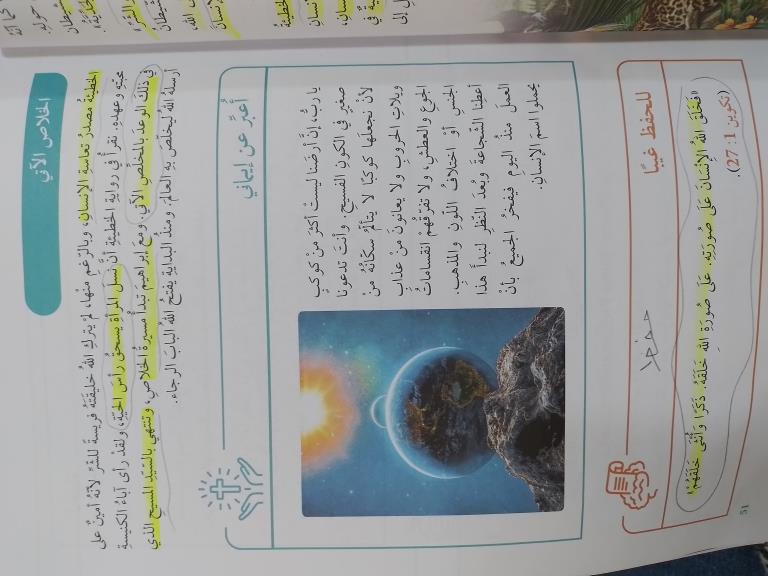 الخلاص الآتي
الخطيئةُ مصدرُ تعاسةِ الإنسان، وبالرّغمِ منها لمْ يتركِ اللهُ خليقتَهُ فريسةً للشرِّ لأنّهُ أمينٌ على
محبّتِهِ وعهدِهِ. نقرأُ في روايةِ الخطيئةِ أنَّ نسلَ المرأةِ يسحقُ رأسَ الحيّةِ، ولقدْ رأى آباءُ الكنيسةِ
في ذلكَ الوعدَ بالمخلّصِ الآتي. ومعَ إبراهيمَ تبدأُ مسيرةُ الخلاصِ، وتنتهي بالسيّدِ المسيحِ الّذي
أرسلَهُ اللهُ ليخلّصَ بهِ العالمَ. ومنذُ البدايةِ يفتحُ اللهُ البابَ الرجاء.
أعبّر عن إيماني
يا ربُّ، إنَّ أرضَنا ليستْ أكثرَ منْ كوكبٍ
صغيرٍ في الكونِ الفسيحِ. وأنتَ تدعونا
لأنْ نجعلَها كوكبًا لا يتألّمُ سكّانُهُ منْ
ويلاتِ الحروبِ ولا يعانونَ منْ عذابِ
الجوعِ والعطشِ، ولا تفرّقُهم انقساماتُ
الجنسِ أو اختلافُ اللّونِ والمذهبِ.
أعطِنا الشّجاعةَ وبُعدَ النّظرِ لنبدأَ هذا
العملَ منذُ اليومِ فيفخرُ الجميعُ بأنْ
يحملوا اسمَ الإنسانِ.
للحفظ غيبًا
«فَخَلَقَ اللهُ الإنْسَانَ عَلَى صُورَتِهِ. عَلَى صُورَةِ اللهِ خَلَقَهُ. ذَكَرًا وَأُنْثَى خَلَقَهُمْ»
(تكوين 1: 27).
51